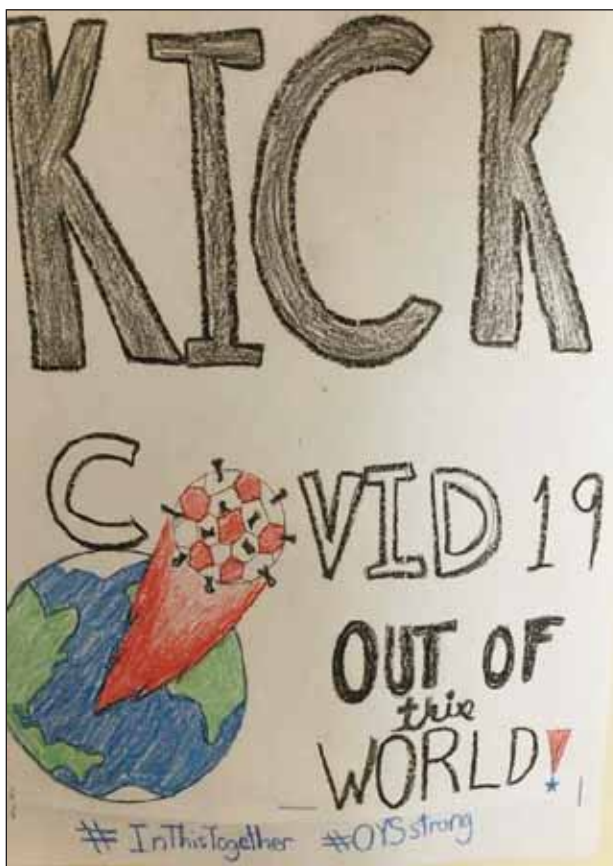 KICK
COVID 19
OUT OF
this
WORLD!
#InThisTogether #OYSstrong